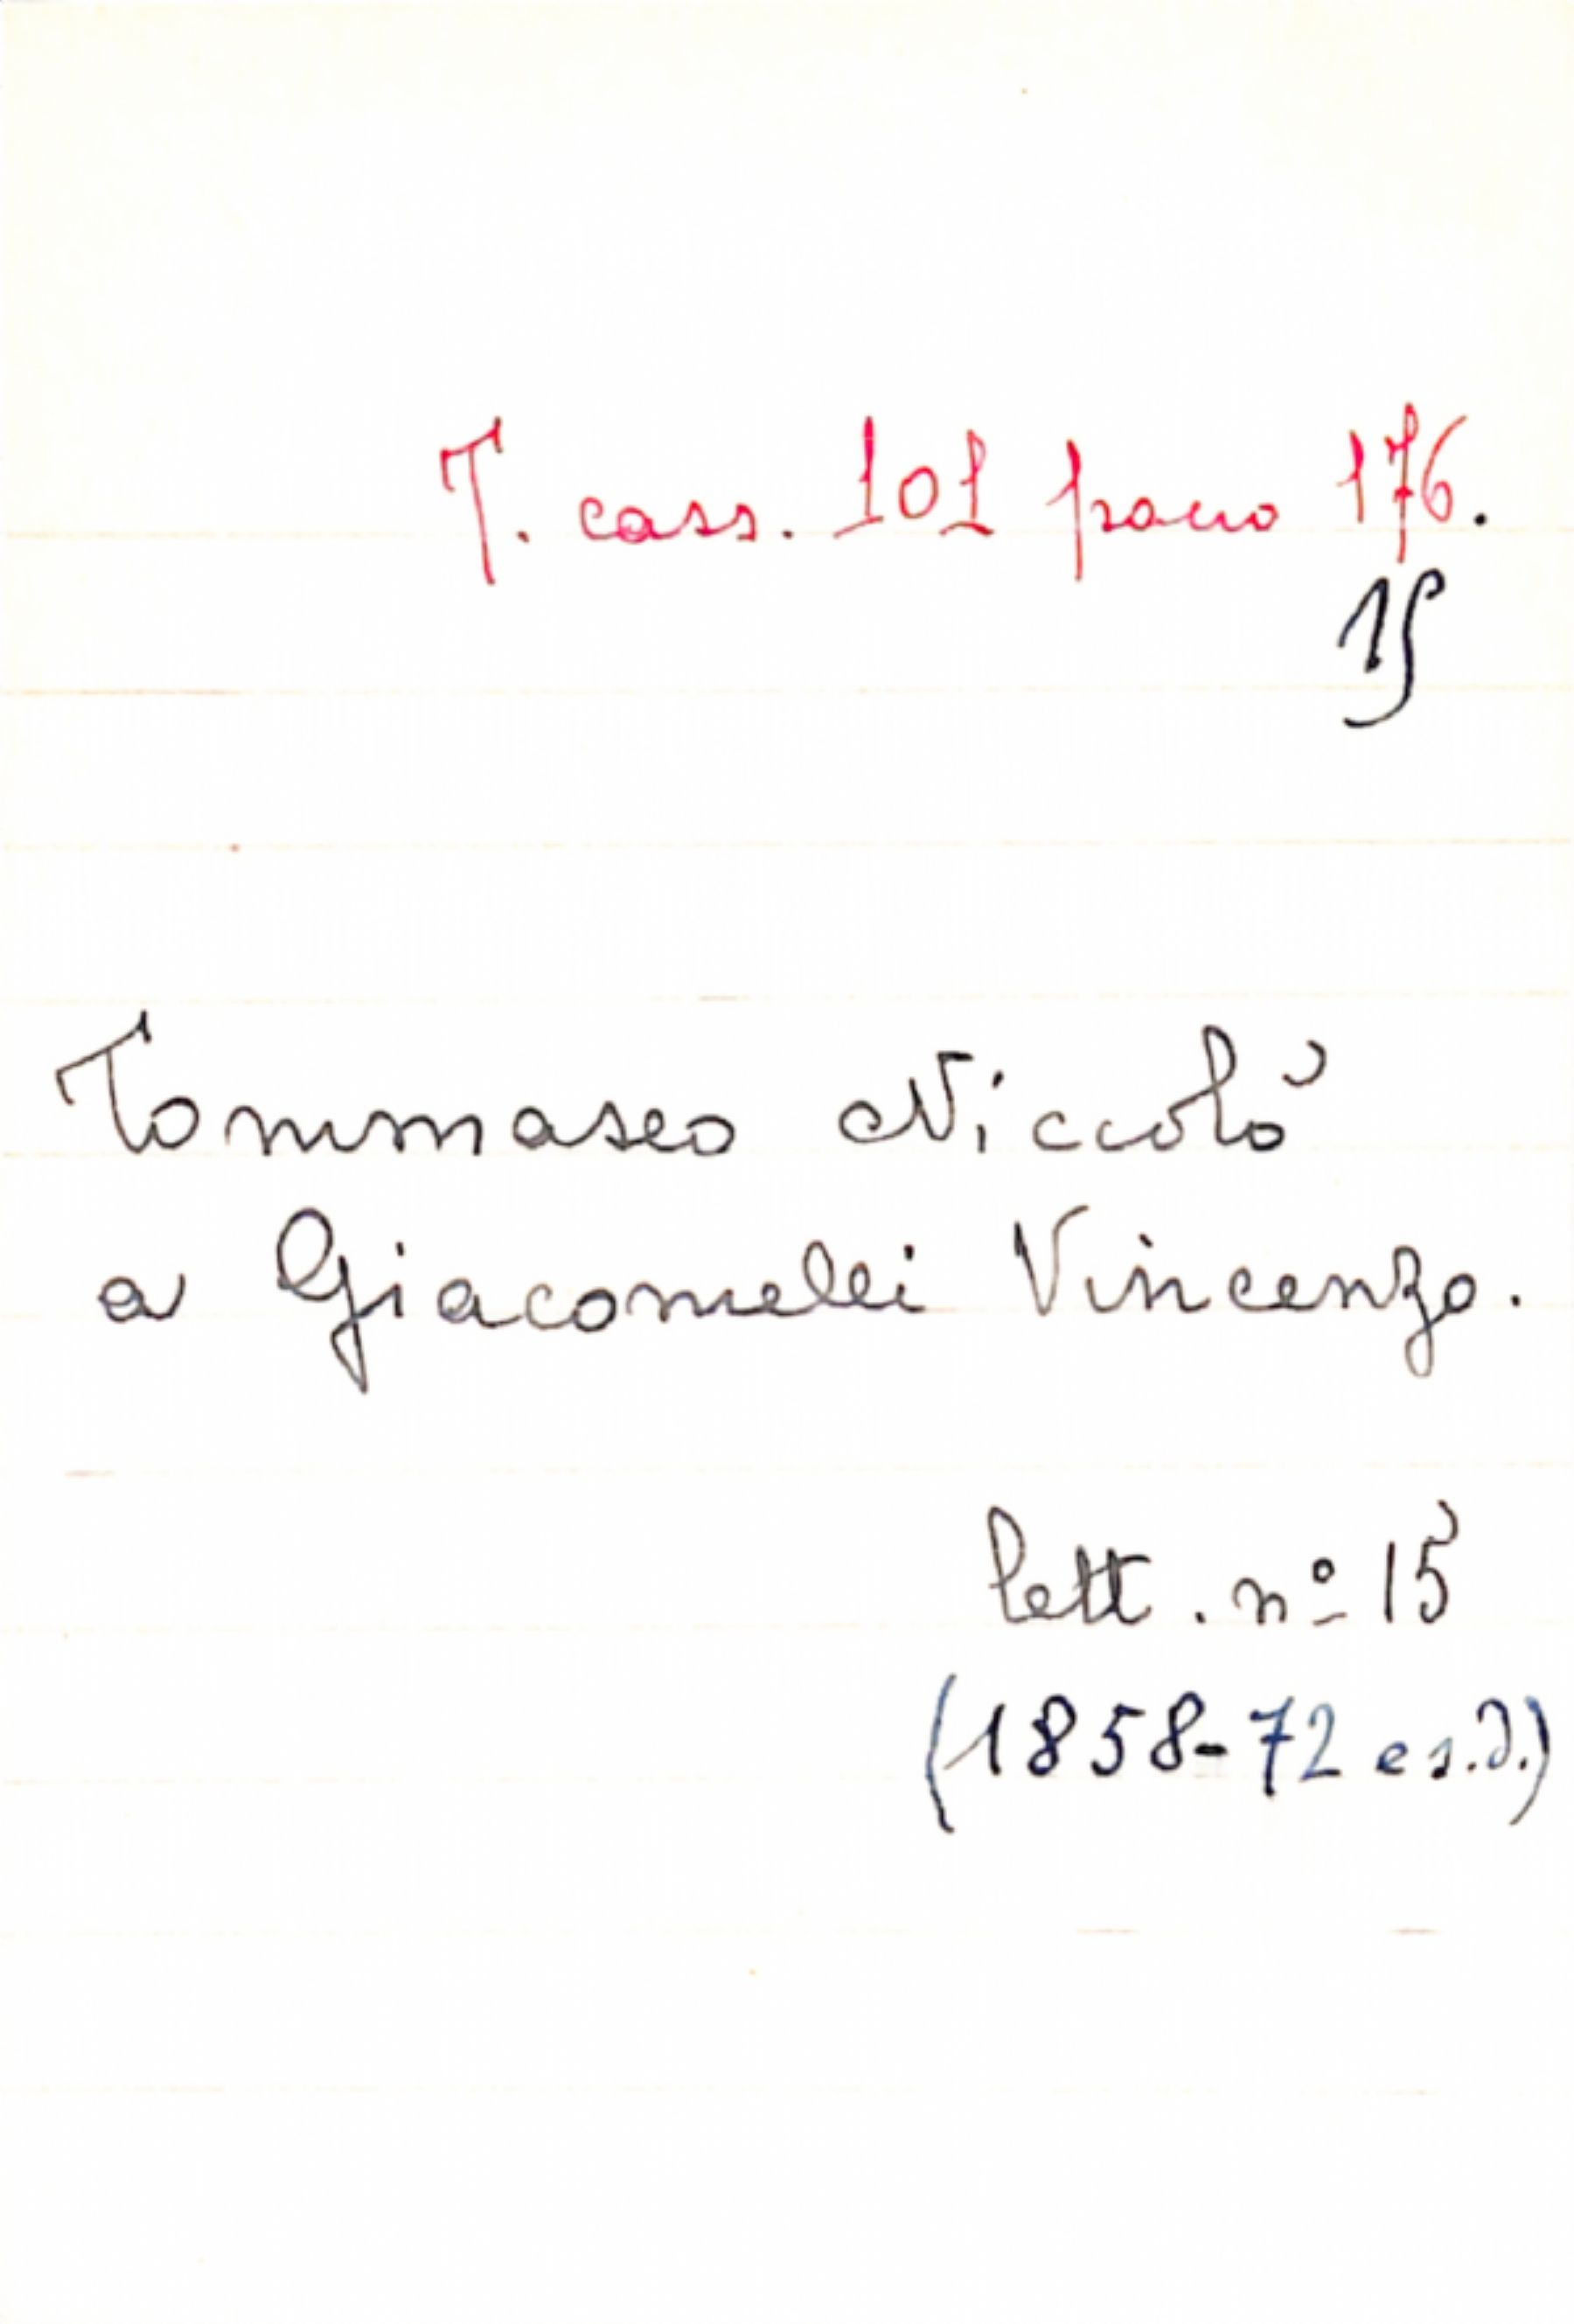 T. cass. 101 pacco 176.
15
Tommaseo Niccolò
a Giacomelli Vincenzo.
lett. nº 15
(1858-72 e s.d.)